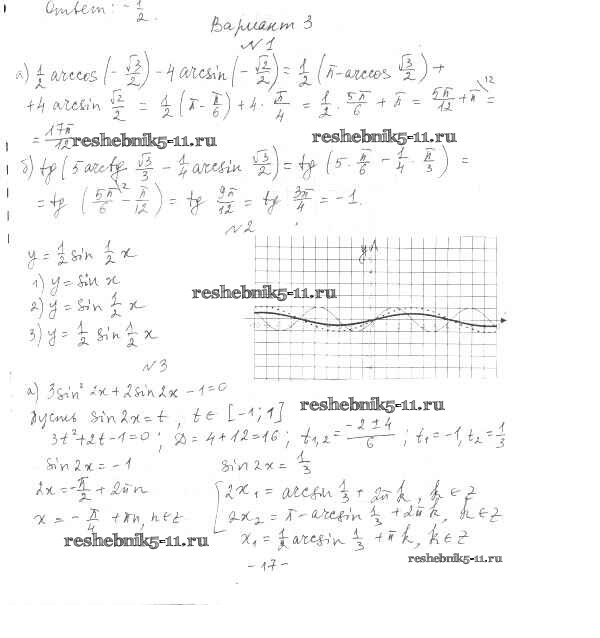 Ответ: -1/2.
Вариант 3
№1
а) 1/2 arccos(-√3/2) - 4 arcsin(-√2/2) = 1/2 (π - arccos √3/2) +
+ 4 arcsin √2/2 = 1/2 (π - π/6) + 4 · π/4 = 1/2 · 5π/6 + π = 5π/12 + π^12 =
= 17π/12
reshebnik5-11.ru
reshebnik5-11.ru
б) tg(5 arctg √3/3 - 1/4 arcsin √3/2) = tg(5 · π/6 - 1/4 · π/3) =
= tg (5π/6^2 - π/12) = tg 9π/12 = tg 3π/4 = -1.
№2
y = 1/2 sin 1/2 x
1) y = sin x
2) y = sin 1/2 x
3) y = 1/2 sin 1/2 x
reshebnik5-11.ru
y
№3
а) 3sin² 2x + 2sin 2x - 1 = 0
Пусть sin 2x = t, t ∈ [-1; 1]
reshebnik5-11.ru
3t² + 2t - 1 = 0; D = 4 + 12 = 16; t1,2 = (-2 ± 4)/6; t1 = -1, t2 = 1/3
sin 2x = -1 sin 2x = 1/3
2x = -π/2 + 2πn [2x1 = arcsin 1/3 + 2πk, k ∈ z
x = -π/4 + πn, n ∈ z 2x2 = π - arcsin 1/3 + 2πk, k ∈ z
reshebnik5-11.ru
x1 = 1/2 arcsin 1/3 + πk, k ∈ z
reshebnik5-11.ru
-17-